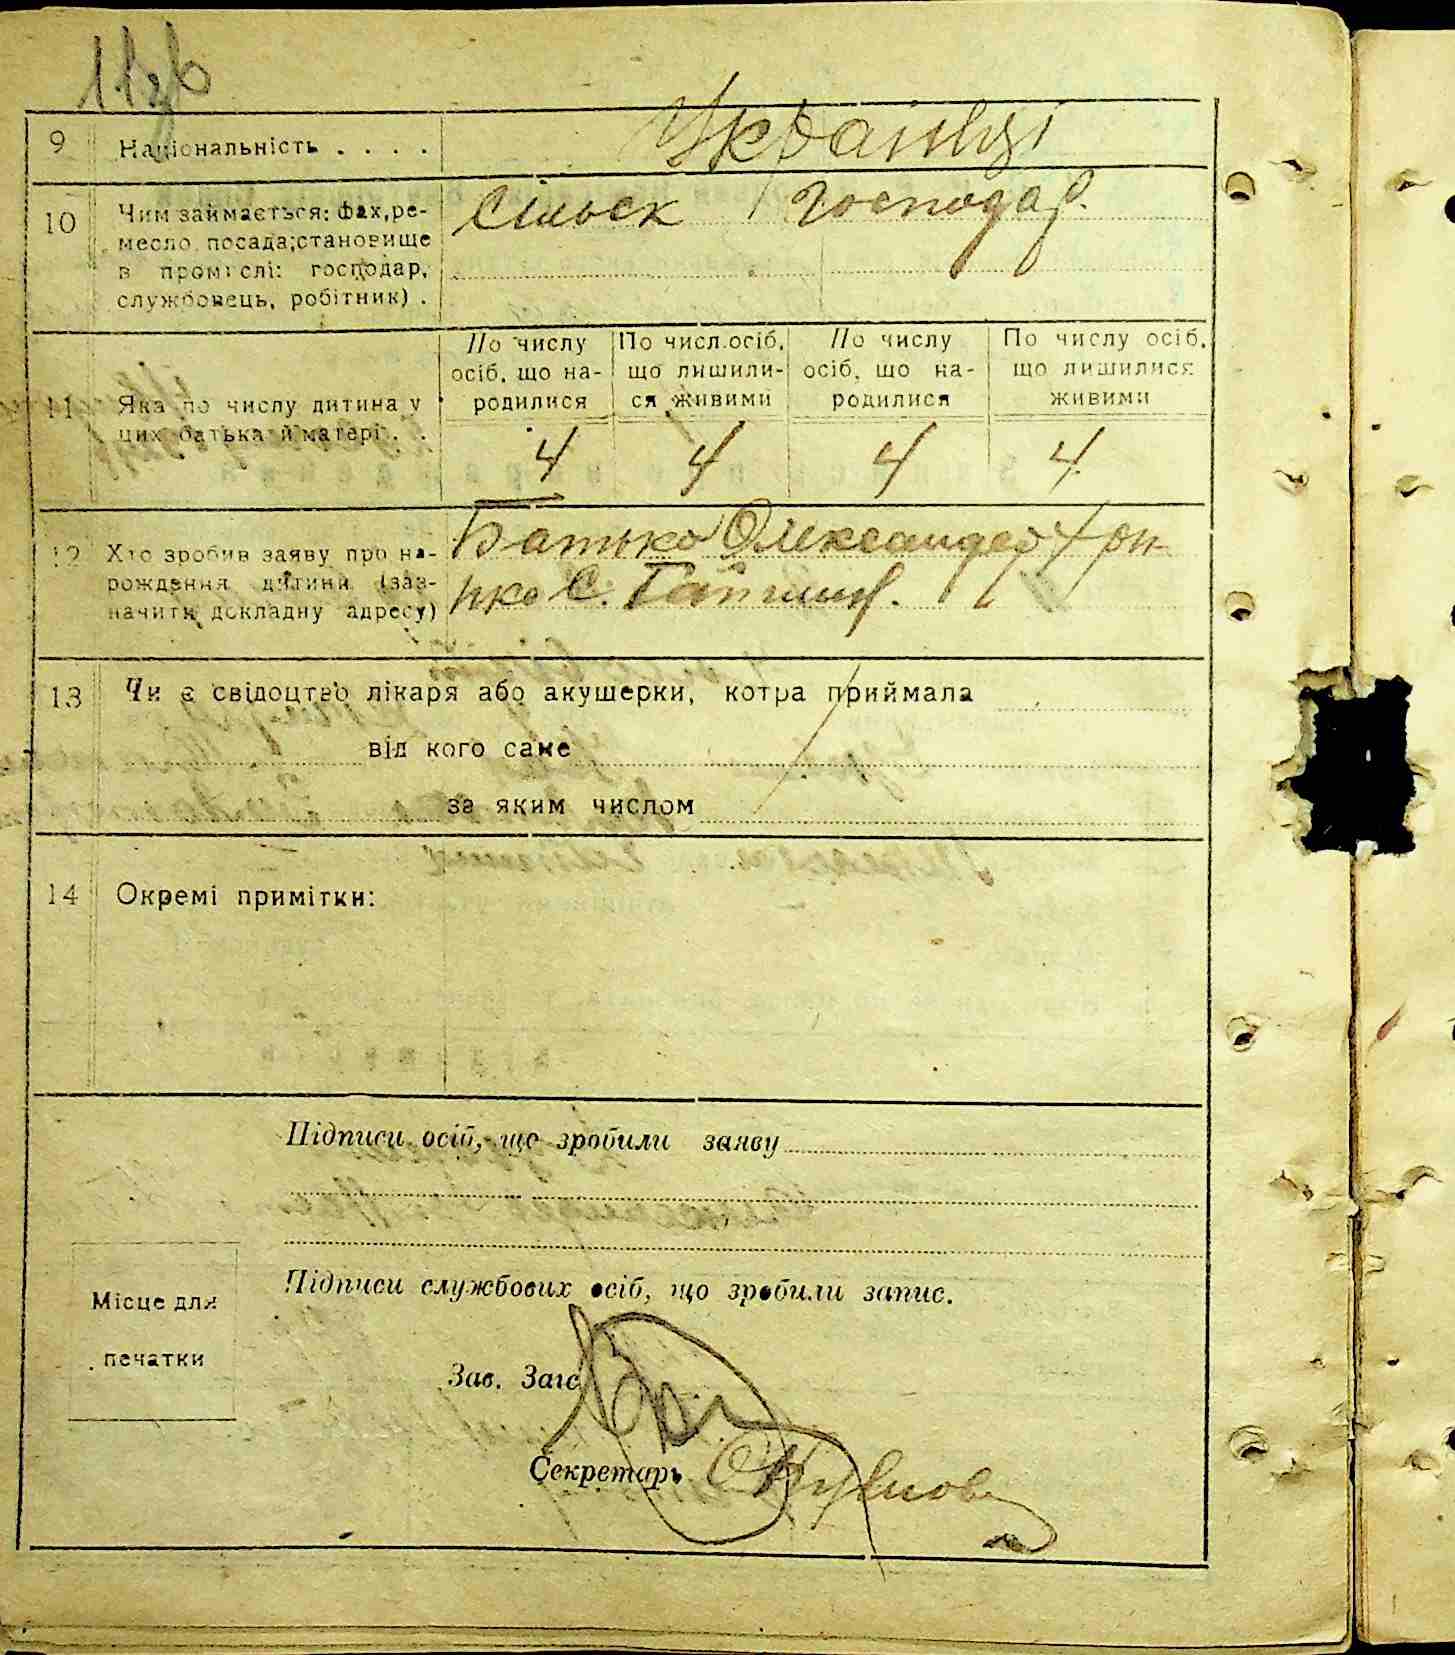 9 Національність . . . . Українці
10 Чим займається: фах,ре-
месло, посада;становище
в промислі: господар,
службовець, робітник) .
Сільск Господар.
11 Яка по числу дитина у
цих батька й матері . .
По числу
осіб, що на-
родилися
4
По числ.осіб,
що лишили-
ся живими
4
По числу
осіб, що на-
родилися
4
По числу осіб,
що лишилися
живими
4
12 Хто зробив заяву про на-
рождення дитини (заз-
начити докладну адресу)
Батько Олександер Гри-
нко С.
13 Чи є свідоцтво лікаря або акушерки, котра приймала
від кого саме
за яким числом
14 Окремі примітки:
Підписи осіб, що зробили заяву
Підписи службових осіб, що зробили запис.
Місце для
печатки
Зав. Загс
Секретарь